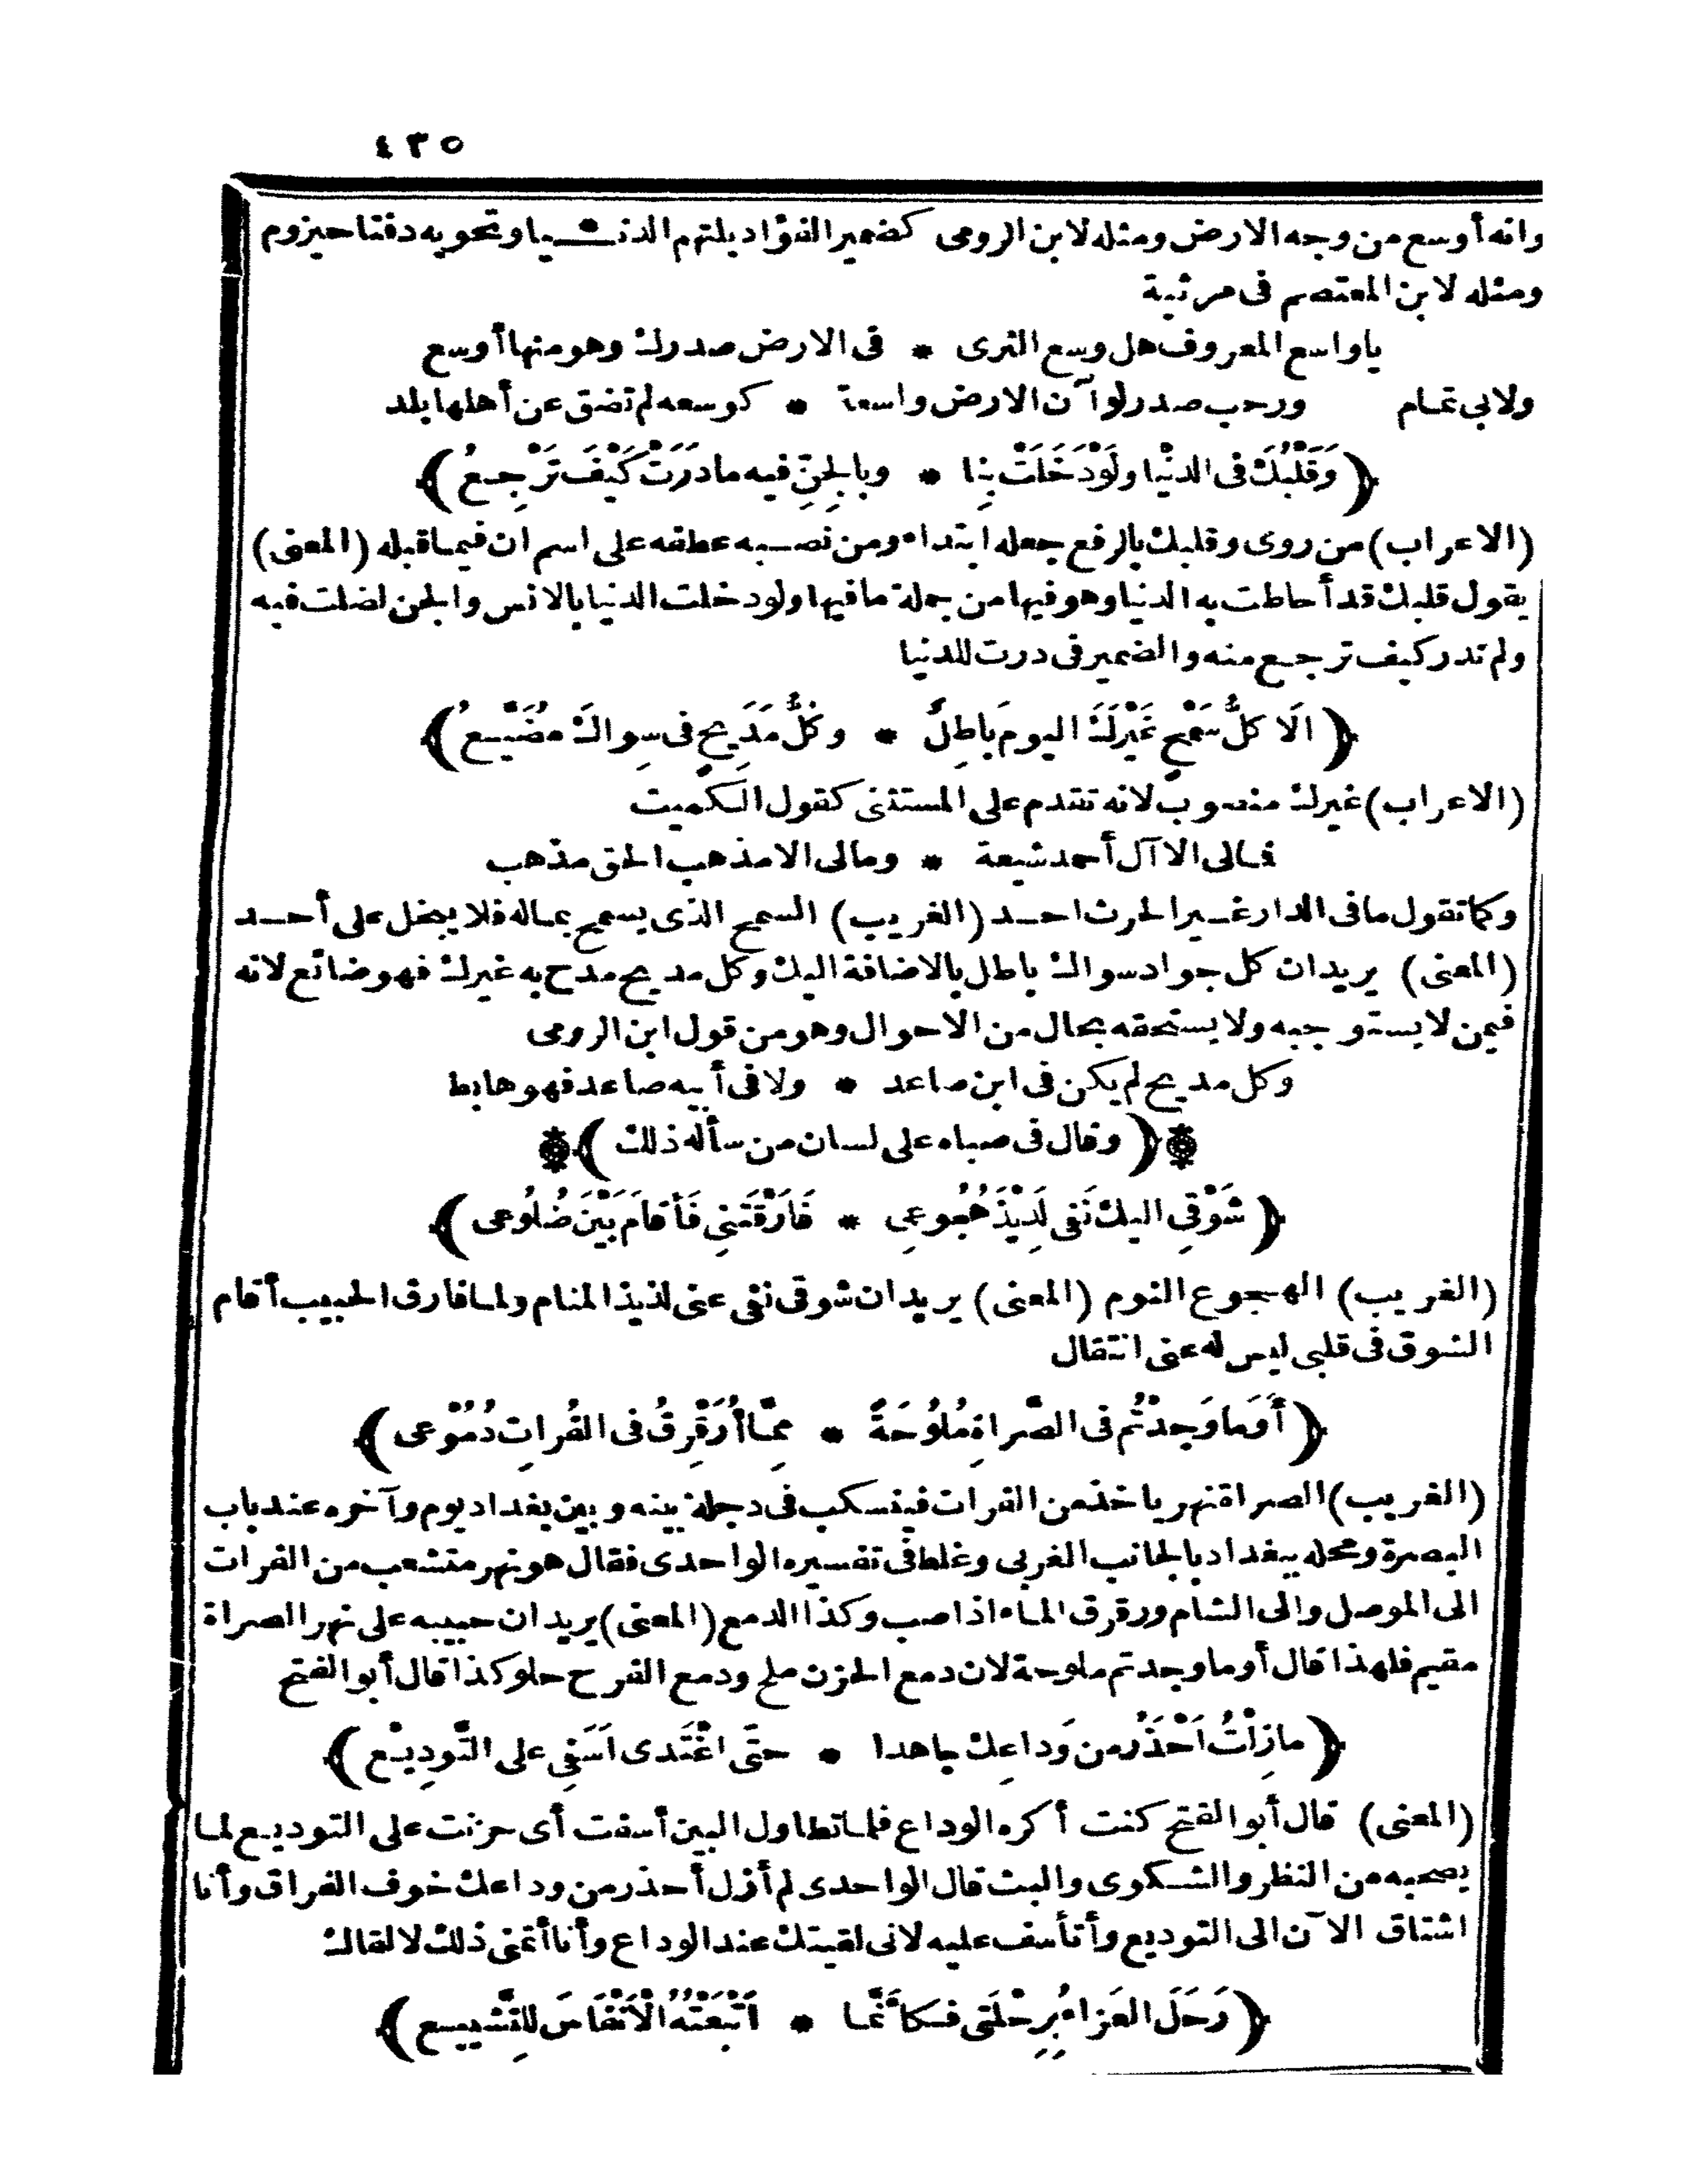 ٤٣٥
وانه أوسع من وجه الارض ومثله لابن الرومى كضمير الفؤاد يلتهم الدنـــيا وتحويه دفتا حيزوم
ومثله لابن المعتصم فى مرثية
ياواسع المعروف هل وسع الثرى * فى الارض صدرك وهو منها أوسع
ولابى تمام ورحب صدر لو آن الارض واسعة * كوسعه لم تضق عن أهلها بلد
﴿وَقَلْبُكَ فى الدنْيا ولَوْدَخَلَتْ بِنا * وبالجِنِّ فيه مادَرَتْ كَيْفَ تَرْجِعُ﴾
(الاعراب) من روى وقلبك بالرفع جعله ابتداء ومن نصبه عطفه على اسم ان فيما قبله (المعنى)
يقول قلبك قد أحاطت به الدنيا وهو فيها من جملة ما فيها ولو دخلت الدنيا بالانس والجن لضلت فيه
ولم تدر كيف ترجع منه والضمير فى درت للدنيا
﴿اَلَا كلُّ سَمْحٍ غَيْرَكَ اليومَ بَاطِلٌ * وكُلُّ مَدَيحٍ فى سِواكَ مُضَيَّعُ﴾
(الاعراب) غيرك منصوب لانه تقدم على المستثنى كقول الكميت
فمالى الا آل أحمد شيعة * ومالى الا مذهب الحق مذهب
وكما تقول ما فى الدار غير الحرث احد (الغريب) السمح الذى يسمح بماله فلا يبخل على أحد
(المعنى) يريد ان كل جواد سواك باطل بالاضافة اليك وكل مديح مدح به غيرك فهو ضائع لانه
فيمن لا يستوجبه ولا يستحقه بحال من الاحوال وهو من قول ابن الرومى
وكل مديح لم يكن فى ابن صاعد * ولا فى أبيه صاعد فهو هابط
﴿وقال فى صباه على لسان من سأله ذلك﴾
﴿شَوْقِى اليك نَفى لَذِيذَ هُجُوعِى * فَارَقْتَنِى فَأَقامَ بَيْنَ ضُلُوعى﴾
(الغريب) الهجوع النوم (المعنى) يريد ان شوقى نفى عنى لذيذ المنام ولما فارق الحبيب أقام
الشوق فى قلبى ليس له عنى انتقال
﴿أَوَما وَجدْتُم فى الصَّراةِ مُلُوحَةً * مِمَّا أُرَقْرِقُ فى الفُراتِ دُمُوْعى﴾
(الغريب) الصراة نهر ياخذ من الفرات فينسكب فى دجلة بينه وبين بغداد يوم وآخره عند باب
البصرة ومحله ببغداد بالجانب الغربى وغلط فى تفسيره الواحدى فقال هو نهر متشعب من الفرات
الى الموصل والى الشام ورقرق الماء اذا صب وكذا الدمع (المعنى) يريد ان حبيبه على نهر الصراة
مقيم فلهذا قال أوما وجدتم ملوحة لان دمع الحزن ملح ودمع الفرح حلو كذا قال أبو الفتح
﴿مازِلْتُ اَحْذَرُ من وَداعِك جاهدا * حتَّى اغْتَدى اَسَفِى على التَّودِيْعِ﴾
(المعنى) قال أبو الفتح كنت أكره الوداع فلما تطاول البين أسفت أى حزنت على التوديع لما
يصحبه من النظر والشكوى والبث قال الواحدى لم أزل أحذر من وداعك خوف الفراق وأنا
اشتاق الآن الى التوديع وأتأسف عليه لانى لقيتك عند الوداع وأنا أتمنى ذلك لالقاك
﴿رَحَلَ العَزاءُ بِرِحْلَتى فكَأنَّما * اَتْبَعْتُهُ الْاَنْفَاسَ لِلتَّشييع﴾